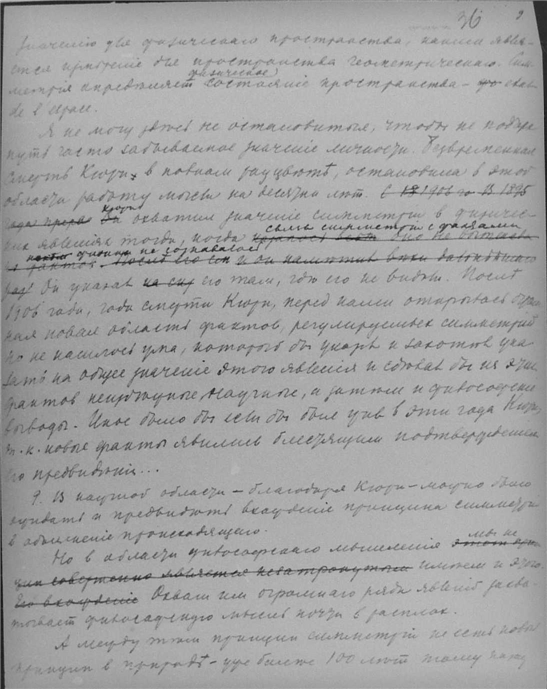 36
значению для физическаго пространства, каким явля-
ется измерение для пространства геометрическаго. Сим-
метрия определяет физическое состояние пространства - état
de l'espace.
Я не могу здесь не остановиться, чтобы не подчерк-
нуть часто забываемое значение личности. Безвременная
смерть Кюри, в полном расцвете, остановила в этой
области работу мысли на десятки лет. В 1895
Кюри охватил значение симметрии в физичес-
ких явлениях тогда, когда связь симметрии с физич.
явлениями не сознавалась
Он указал его там, где его не видели. После
1906 года, года смерти Кюри, перед нами открылась огром-
ная новая область фактов, регулируемых симметрией
но не нашлось ума, который бы умел и захотел ука-
зать на общее значение этого явления и сделать бы из этих
фактов неизбежные научные, а затем и философские
выводы. Иное было бы если бы был жив в эти года Кюри,
т. к. новые факты явились блестящим подтверждением
его предвидений...
9. В научной области - благодаря Кюри - можно было
ожидать и предвидеть вхождение принципа симметрии
в объяснение происходящего.
Но в области философскаго мышления мы не
имеем и этого.
Охват им огромнаго ряда явлений захва-
тывает философскую мысль почти в расплох.
А между тем принцип симметрии не есть новый
принцип в природе - уже более 100 лет тому назад